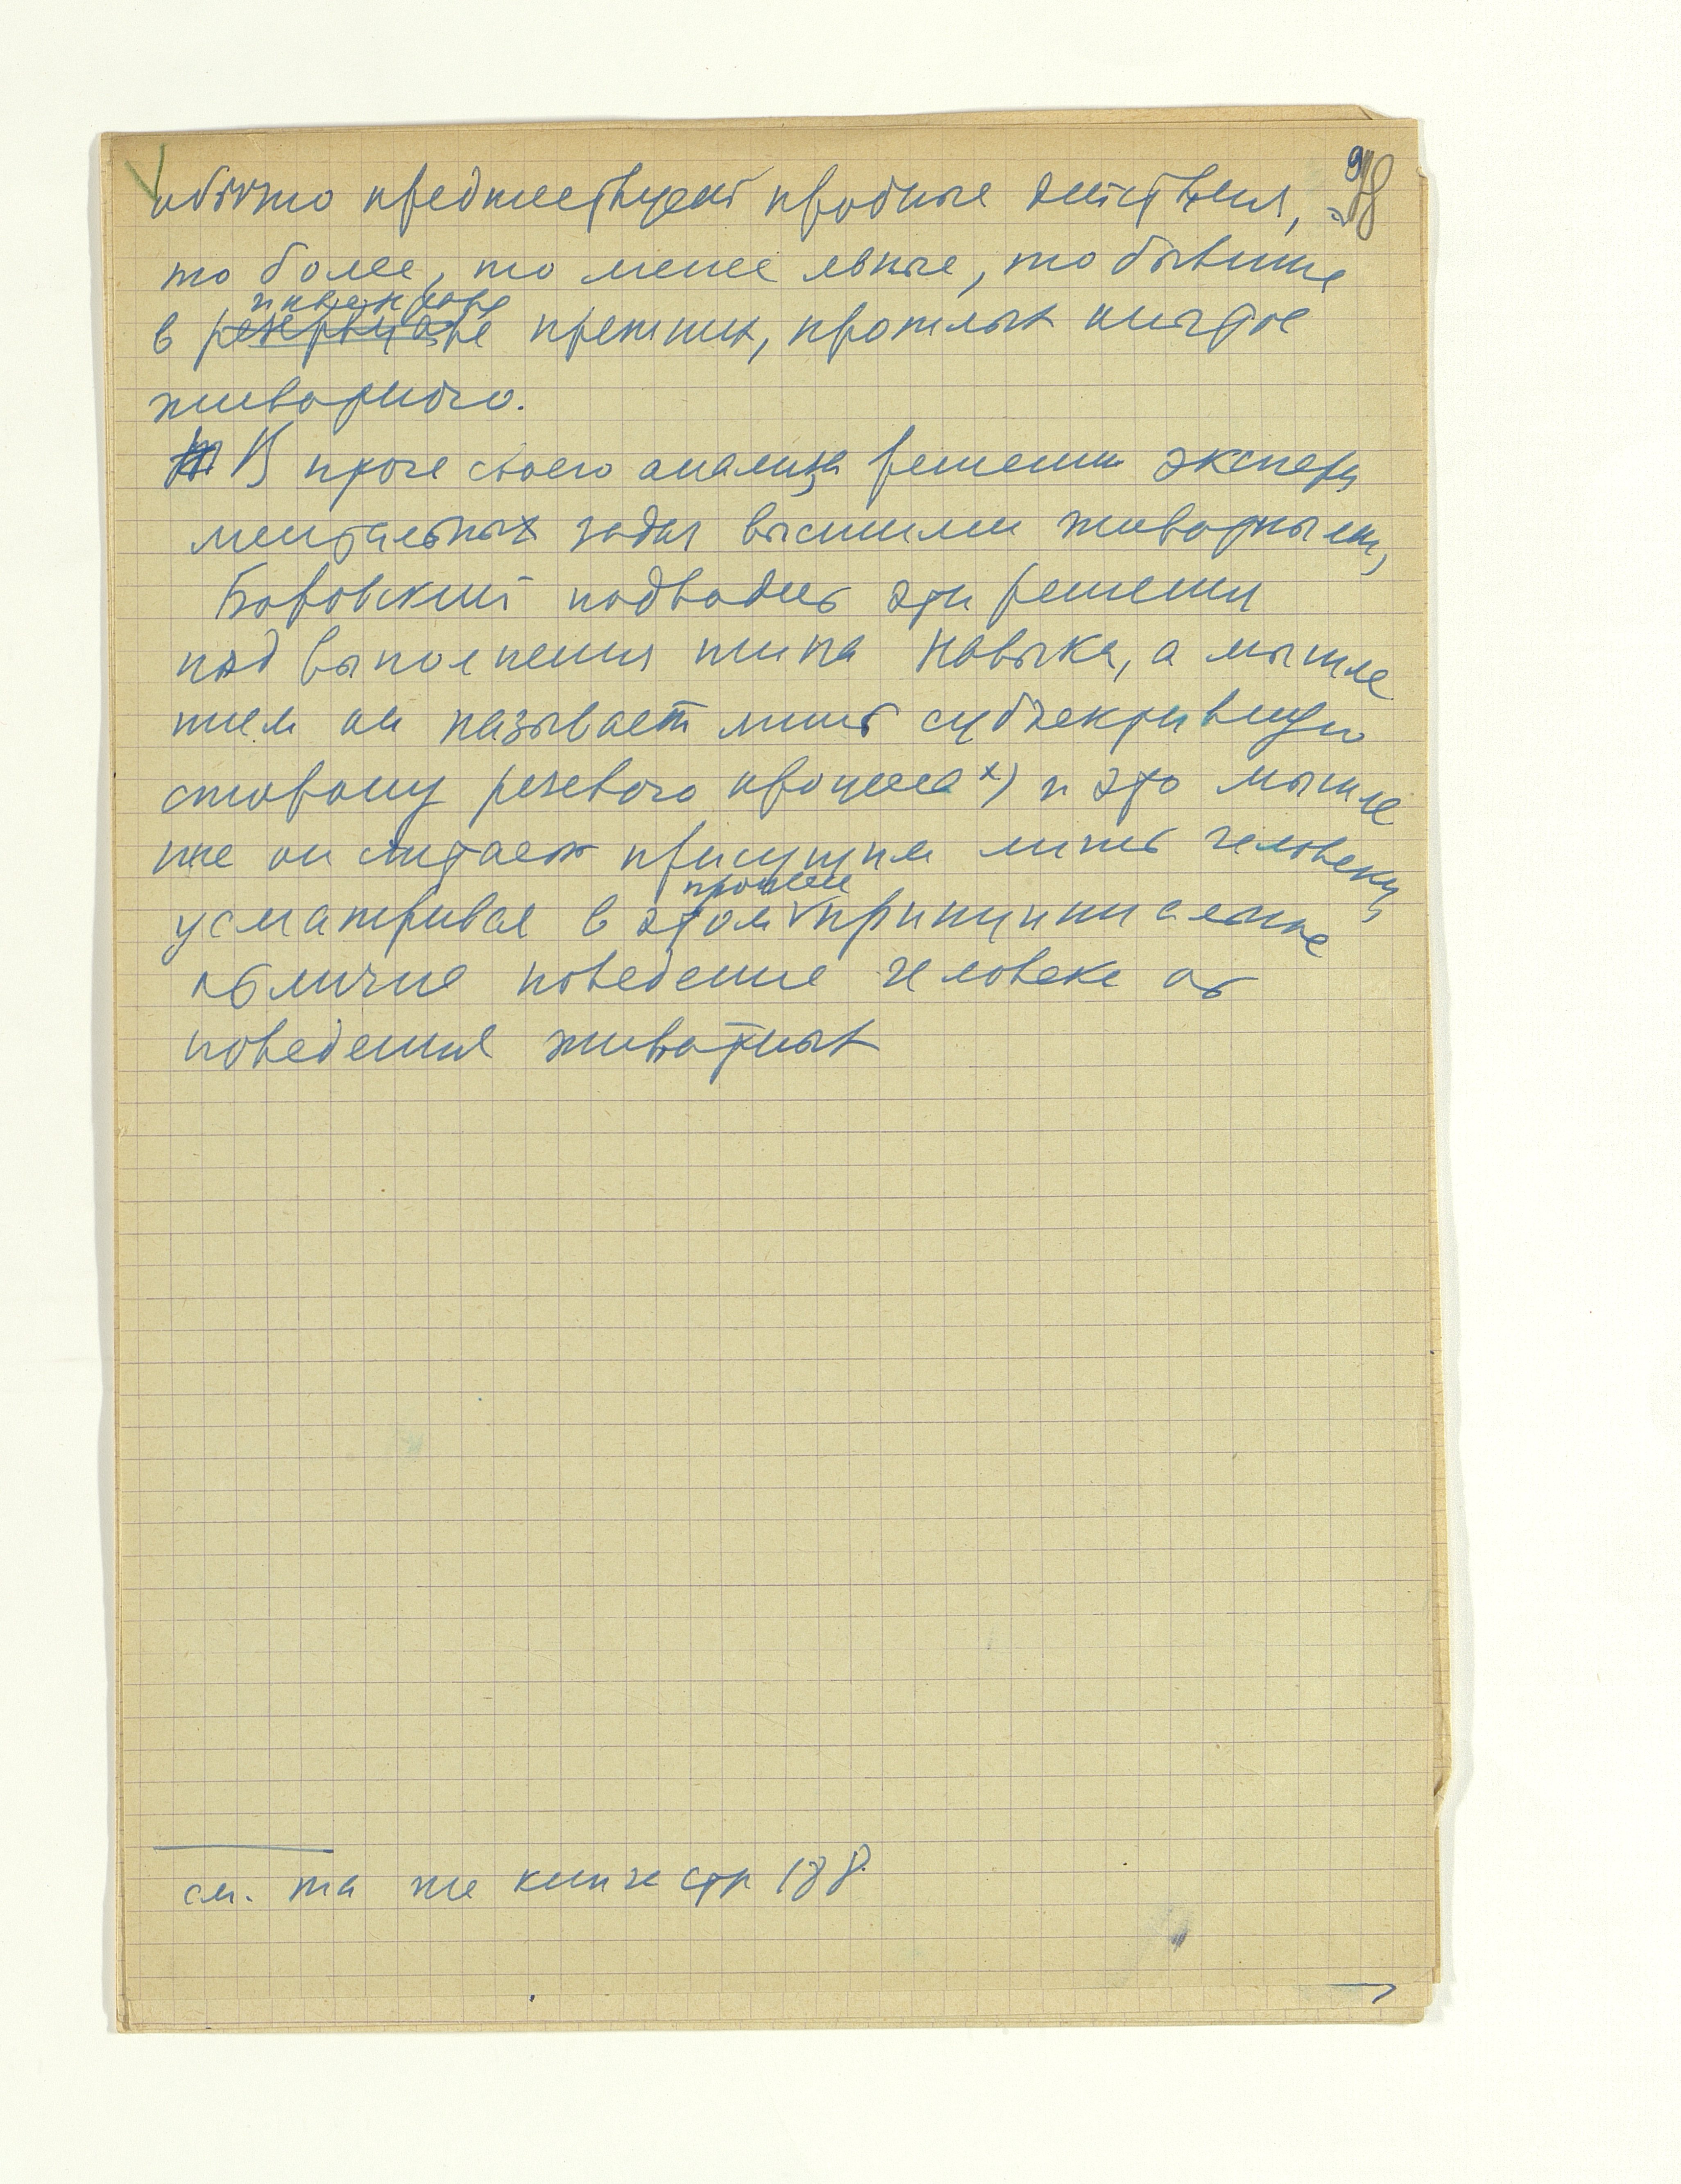 обычно предшествуют пробные действия,
то более, то менее явные, то бывшие
инвентаре
в прежних, прошлых опытов
животного.
В итоге своего анализа решения экспери
ментальных задач высшими животными,
Боровский подводит эти решения
под выполнения типа навыка, а мышле
нием он называет лишь субъективную
сторону речевого процесса х) и это мышле
ние он считает присущим лишь человеку,
усматривая в этом принципиальное
отличие поведения человека от
поведения животных
см. та же книга стр 188